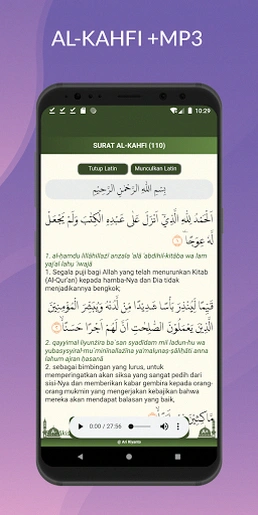 AL-KAHFI +MP3
10:29
SURAT AL-KAHFI (110)
Tutup Latin
Munculkan Latin
بِسْمِ اللّٰهِ الرَّحْمٰنِ الرَّحِيْمِ
اَلْحَمْدُ لِلّٰهِ الَّذِيْٓ اَنْزَلَ عَلٰى عَبْدِهِ الْكِتٰبَ وَلَمْ يَجْعَلْ
لَّهٗ عِوَجًا
1. al-ḥamdu lillāhillażī anzala 'alā 'abdihil-kitāba wa lam
yaj'al lahụ 'iwajā
1. Segala puji bagi Allah yang telah menurunkan Kitab
(Al-Qur'an) kepada hamba-Nya dan Dia tidak
menjadikannya bengkok;
قَيِّمًا لِّيُنْذِرَ بَأْسًا شَدِيْدًا مِّنْ لَّدُنْهُ وَيُبَشِّرَ الْمُؤْمِنِيْنَ
الَّذِيْنَ يَعْمَلُوْنَ الصّٰلِحٰتِ اَنَّ لَهُمْ اَجْرًا حَسَنًا
2. qayyimal liyunżira ba`san syadīdam mil ladun-hu wa
yubasysyiral-mu`minīnallażīna ya'malụnaṣ-ṣāliḥāti anna
lahum ajran ḥasanā
2. sebagai bimbingan yang lurus, untuk
memperingatkan akan siksa yang sangat pedih dari
sisi-Nya dan memberikan kabar gembira kepada orang-
orang mukmin yang mengerjakan kebajikan bahwa
mereka akan mendapat balasan yang baik,
مَّاكِثِيْنَ فِيْهِ اَبَدًا
0:00 / 27:56
@ Ari Riyanto